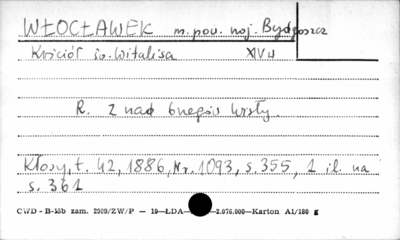 WŁOCŁAWEK m. pow. woj. Bydgoszcz
Kościół św. Witalisa XIV w
R. z nad brzegów Wisły.
Kłosy, t. 42, 1886, Nr. 1093, s. 355, 1 il. na
s. 361
CWD - B-15b zam. 2909/ZW/P — 19—ŁDA— —2.076.000—Karton A1/180 g